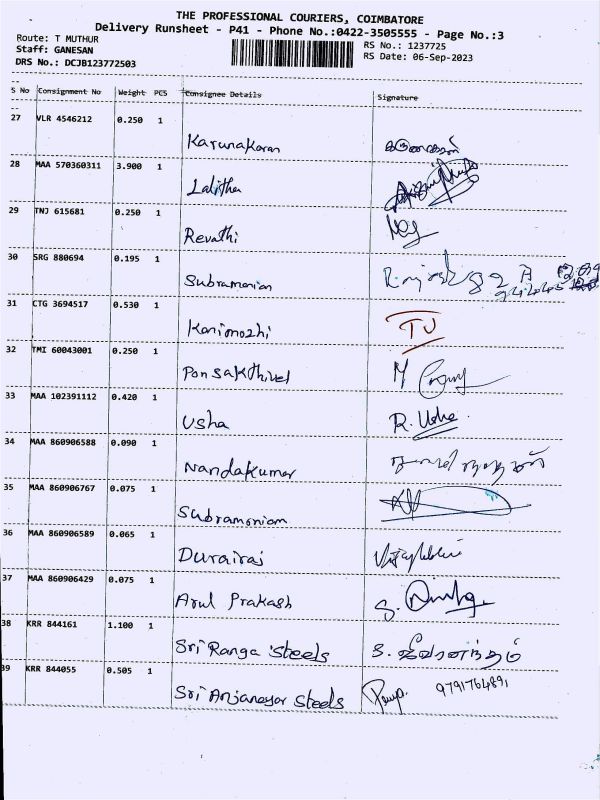 THE PROFESSIONAL COURIERS, COIMBATORE
Delivery Runsheet - P41 - Phone No.:0422-3505555 - Page No.:3
Route: T MUTHUR
Staff: GANESAN
DRS No.: DCJB123772503
RS No.: 1237725
RS Date: 06-Sep-2023
S No Consignment No Weight PCS Consignee Details Signature
27 VLR 4546212 0.250 1 Karunakaran
28 MAA 570360311 3.900 1 Lalitha
29 TNJ 615681 0.250 1 Revathi
30 SRG 880694 0.195 1 Subramanian
31 CTG 3694517 0.530 1 Kanimozhi TJ
32 TMI 60043001 0.250 1 Ponsakthivel
33 MAA 102391112 0.420 1 Usha R. Usha
34 MAA 860906588 0.090 1 Nandakumar
35 MAA 860906767 0.075 1 Subramaniam
36 MAA 860906589 0.065 1 Durairaj
37 MAA 860906429 0.075 1 Arul Prakash
38 KRR 844161 1.100 1 Sri Ranga Steels
39 KRR 844055 0.505 1 Sri Anjaneyar Steels 9791764891